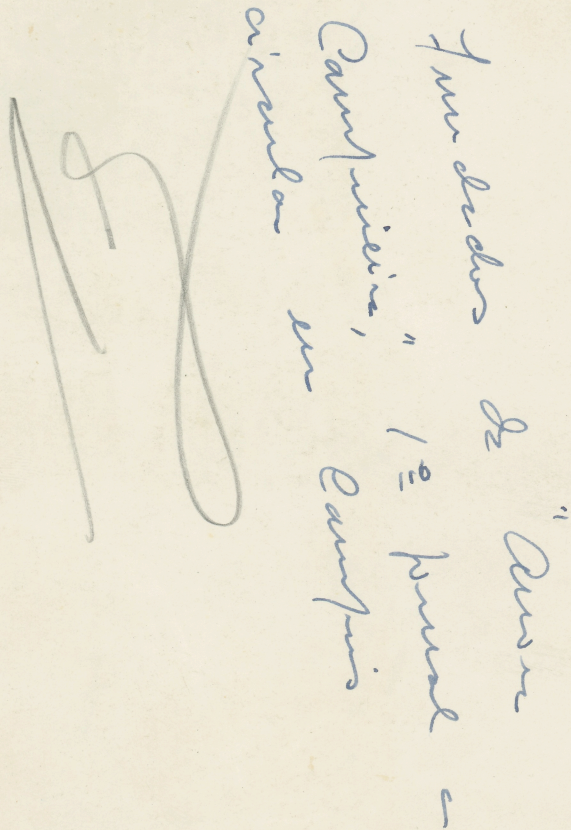 Fundador da "Aurora
Campineira", 1º jornal a
circular em Campinas